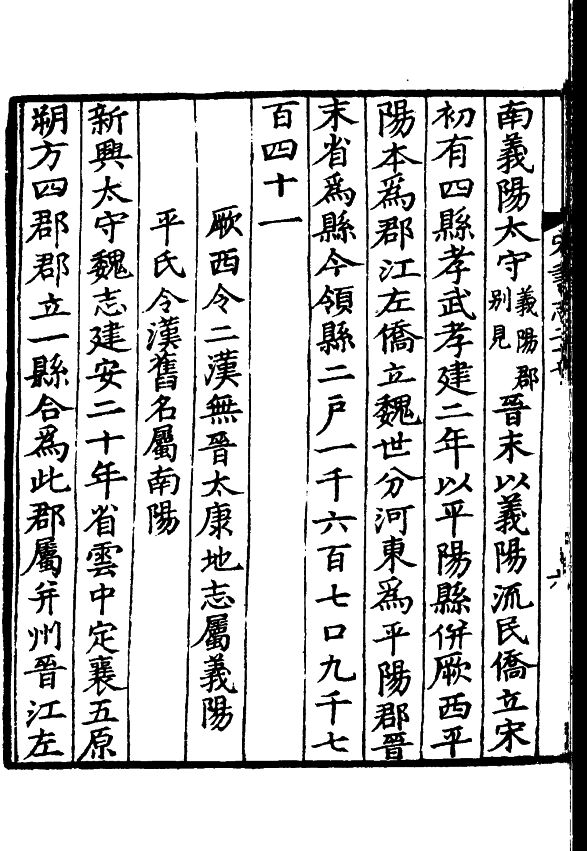 南義陽太守義陽郡別見晉末以義陽流民僑立宋
初有四縣孝武孝建二年以平陽縣併厥西平
陽本為郡江左僑立魏世分河東為平陽郡晉
末省為縣今領縣二戶一千六百七口九千七
百四十一
厥西令二漢無晉太康地志屬義陽
平氏令漢舊名屬南陽
新興太守魏志建安二十年省雲中定襄五原
朔方四郡郡立一縣合為此郡屬并州晉江左